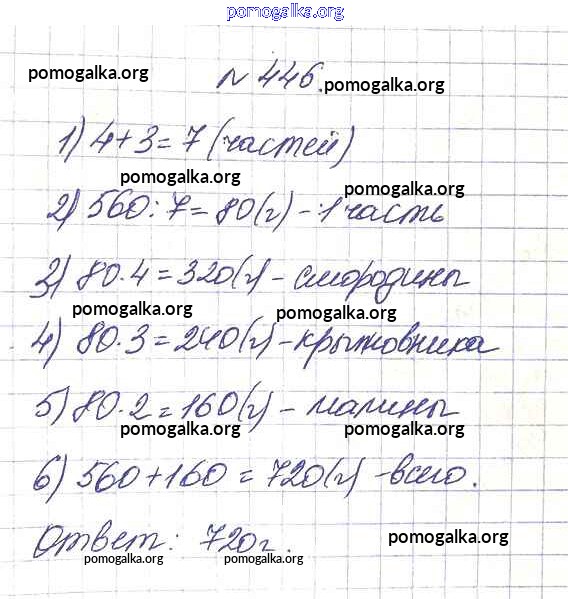 pomogalka.org
№ 446.
pomogalka.org pomogalka.org
1) 4+3=7 (частей)
pomogalka.org pomogalka.org
2) 560:7=80(г) - 1 часть
3) 80·4=320(г) - смородины
pomogalka.org pomogalka.org
4) 80·3=240(г) - крыжовника
5) 80·2=160(г) - малины
pomogalka.org pomogalka.org
6) 560+160=720(г) - всего.
Ответ: 720г.
pomogalka.org
pomogalka.org pomogalka.org pomogalka.org